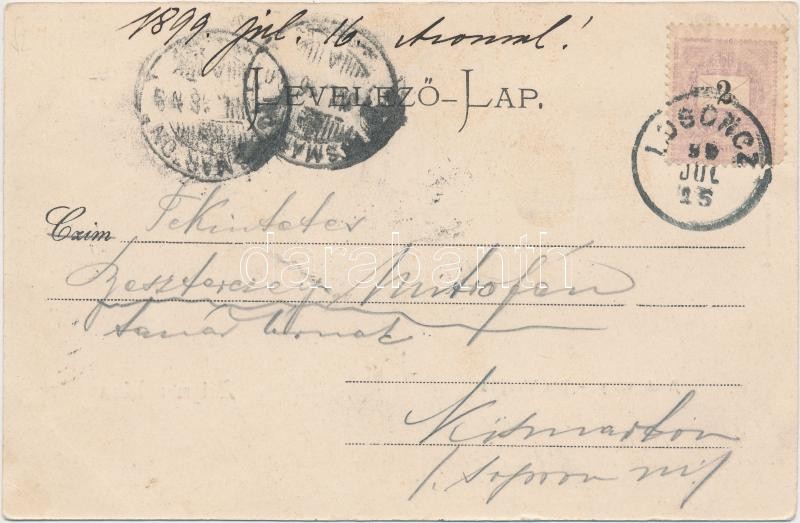 1899. júl. 16
LEVELEZŐ-LAP.
2
LOSONCZ
99
JUL
15
KISMARTON
KISMARTON
Czim Tekintetes
Mitrofán
tanár úrnak
Kismarton
Sopron m.
darabanth